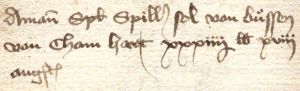 Aman Spk Spill sol von büssen
von Cham hart xxxiiij lb xviij
angst